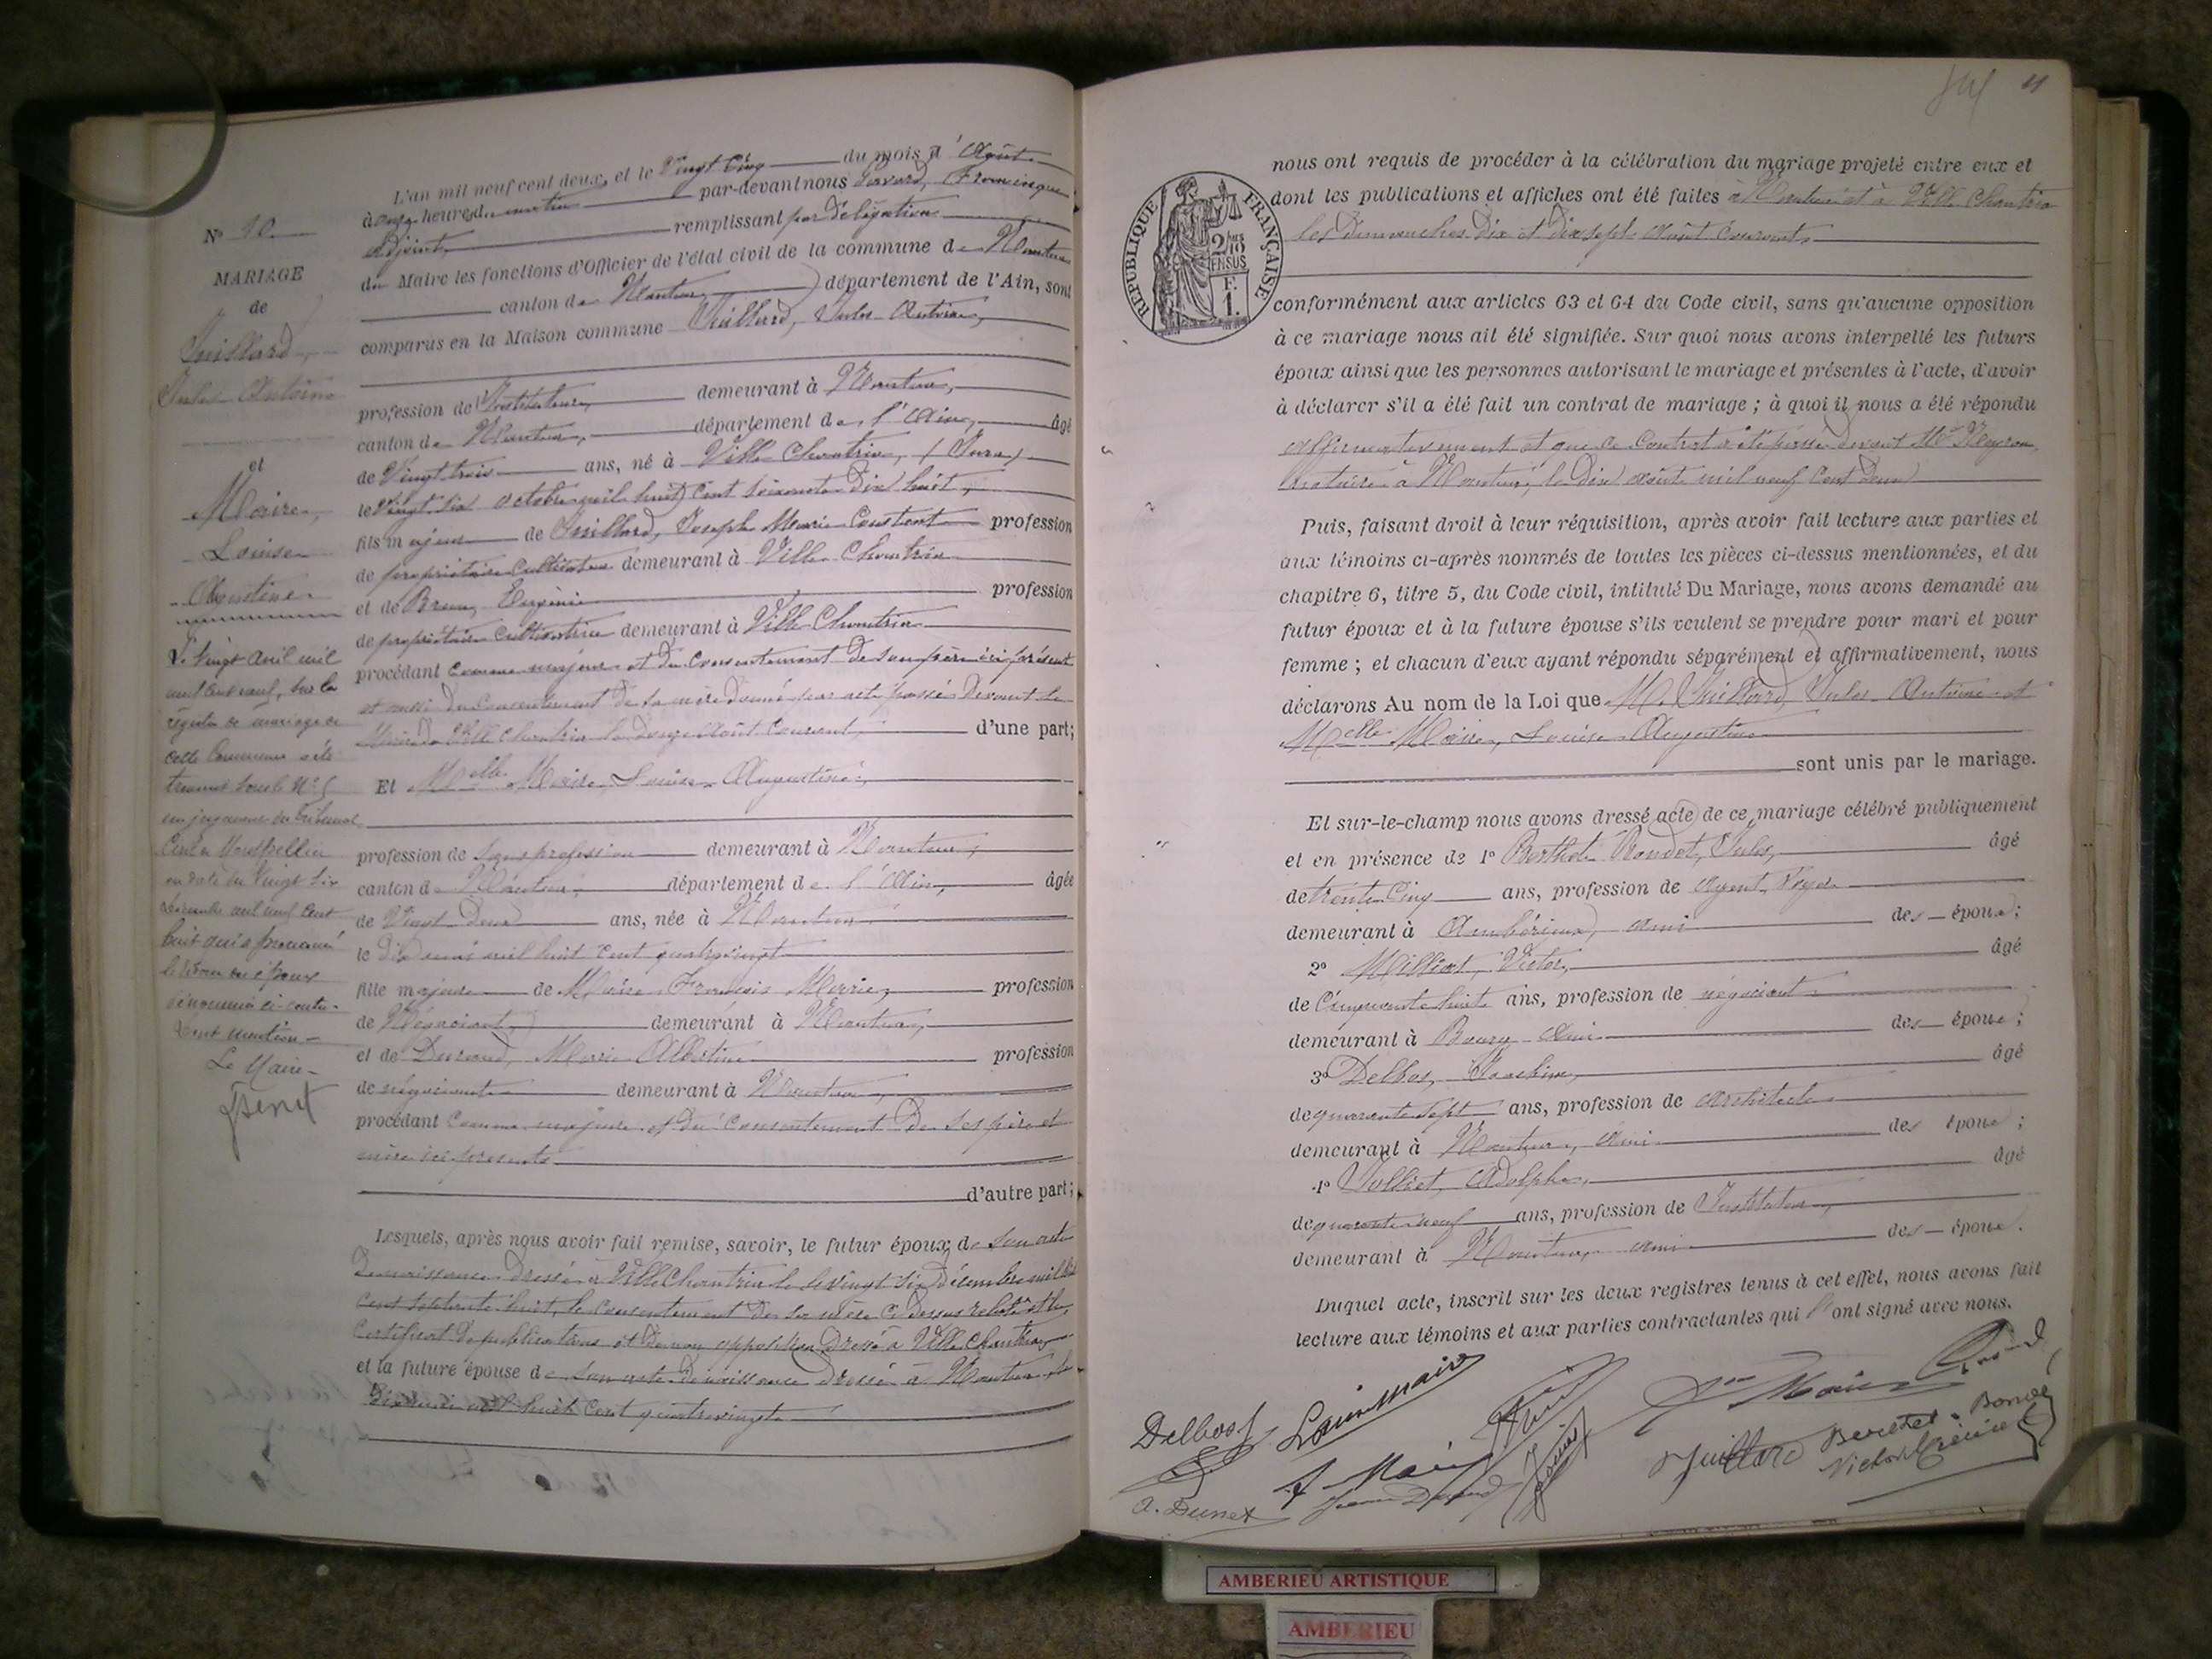 N° 10
MARIAGE
de
Juillard
Jules Antoine
et
Maire,
Louise
Augustine
Le vingt avril mil
neuf cent neuf, sur le
registre de mariage de
cette Commune a été
transcrit sous le N° 5
un jugement du Tribunal
Civil de Montpellier
en date du vingt six
décembre mil neuf cent
huit qui a prononcé
le divorce des époux
dénommés ci-contre.
Dont mention
Le Maire
L'an mil neuf cent deux, et le Vingt Cinq du mois d'Août
à onze heures du matin par-devant nous
adjoint remplissant par délégation
du Maire les fonctions d'Officier de l'état civil de la commune de Nantua
canton de Nantua département de l'Ain, sont
comparus en la Maison commune Juillard, Jules Antoine,
profession de Instituteur, demeurant à Nantua,
canton de Nantua, département de l'Ain, âgé
de Vingt trois ans, né à Ville Chantria, (Jura)
le Vingt six octobre mil huit cent soixante dix huit,
fils majeur de Juillard, Joseph Marie Constant profession
de propriétaire cultivateur demeurant à Ville Chantria
et de Brun, Eugénie profession
de propriétaire cultivatrice demeurant à Ville Chantria
procédant comme majeur et du consentement de son père ici présent
et aussi du consentement de sa mère donné par acte passé devant le
Maire de Ville Chantria le douze Août courant, d'une part;
Et Melle Maire, Louise Augustine,
profession de sans profession demeurant à Nantua,
canton de Nantua, département de l'Ain, âgée
de Vingt Deux ans, née à Nantua
le Dix mai mil huit cent quatre vingt
fille majeure de Maire, François Marie, profession
de Négociant, demeurant à Nantua,
et de Durand, Marie Albertine profession
de négociante demeurant à Nantua,
procédant comme majeure et du consentement de ses père et
mère ici présents
d'autre part;
Lesquels, après nous avoir fait remise, savoir, le futur époux, de son acte
de naissance dressé à Ville Chantria le vingt six décembre mil huit
cent septante huit, le consentement de sa mère ci dessus relaté et le
Certificat de publications et de non opposition dressé à Ville Chantria
et la future épouse de son acte de naissance dressé à Nantua, le
Dix mai mil huit cent quatre vingt
11
RÉPUBLIQUE FRANÇAISE
2/10 EN SUS
F.
1.
nous ont requis de procéder à la célébration du mariage projeté entre eux et
dont les publications et affiches ont été faites à Nantua et à Ville Chantria
les dimanches Dix et Dix sept août courant
conformément aux articles 63 et 64 du Code civil, sans qu'aucune opposition
à ce mariage nous ait été signifiée. Sur quoi nous avons interpellé les futurs
époux ainsi que les personnes autorisant le mariage et présentes à l'acte, d'avoir
à déclarer s'il a été fait un contrat de mariage ; à quoi il nous a été répondu
affirmativement et que ce contrat a été passé devant Me Neyron,
Notaire à Nantua, le Dix août mil neuf cent deux
Puis, faisant droit à leur réquisition, après avoir fait lecture aux parties et
aux témoins ci-après nommés de toutes les pièces ci-dessus mentionnées, et du
chapitre 6, titre 5, du Code civil, intitulé Du Mariage, nous avons demandé au
futur époux et à la future épouse s'ils veulent se prendre pour mari et pour
femme ; et chacun d'eux ayant répondu séparément et affirmativement, nous
déclarons Au nom de la Loi que M. Juillard, Jules Antoine et
Melle Maire, Louise Augustine
sont unis par le mariage.
Et sur-le-champ nous avons dressé acte de ce mariage célébré publiquement
et en présence de 1° Berthet Bondet, Jules, âgé
de trente Cinq ans, profession de agent voyer
demeurant à Ambérieux, ami des époux ;
2° Milliat, Victor, âgé
de Cinquante huit ans, profession de négociant
demeurant à Bourg ami des époux ;
3° Delbos, Joachim, âgé
de quarante sept ans, profession de architecte
demeurant à Nantua, ami des époux ;
4° Jolliet, Adolphe, âgé
de quarante neuf ans, profession de Instituteur,
demeurant à Nantua, ami des époux.
Duquel acte, inscrit sur les deux registres tenus à cet effet, nous avons fait
lecture aux témoins et aux parties contractantes qui l'ont signé avec nous.
Delbos
Louise Maire
Maire
A. Maire
Juillard
AMBERIEU ARTISTIQUE
AMBERIEU